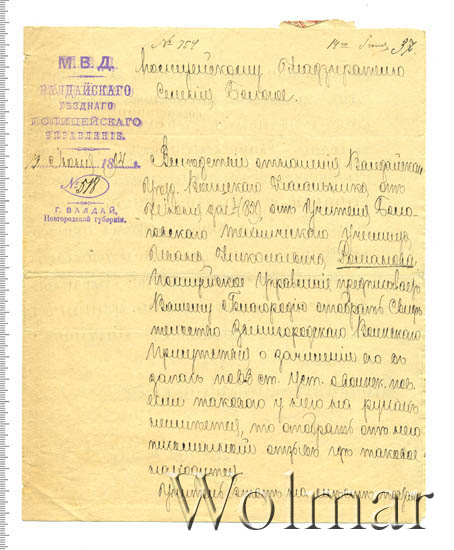 № 754
М. В. Д.
ВАЛДАЙСКАГО
УѢЗДНАГО
ПОЛИЦЕЙСКАГО
УПРАВЛЕНІЕ.
Іюня 18
№ 518
Г. ВАЛДАЙ,
Новгородской губерніи.
Полицейскому Надзирателю
Селенія Бологое.
Вслѣдствіе отношенія Валдайскаго
Уѣзд. Воинскаго Начальника отъ
Іюня за № от Учителя Боло-
говскаго техническаго Училища
Ивана Николаевича Романова
Полицейское Управленіе предписываетъ
Вашему Благородію отобрать Свидѣ
тельство Звенигородскаго Воинскаго
Присутствія о зачисленіи его въ
запасъ по ст. Уст. о воинск. пов.
если таковаго у него на рукахъ
неимѣется, то отобрать отъ него
письменный отзывъ гдѣ таковое
находится
Wolmar